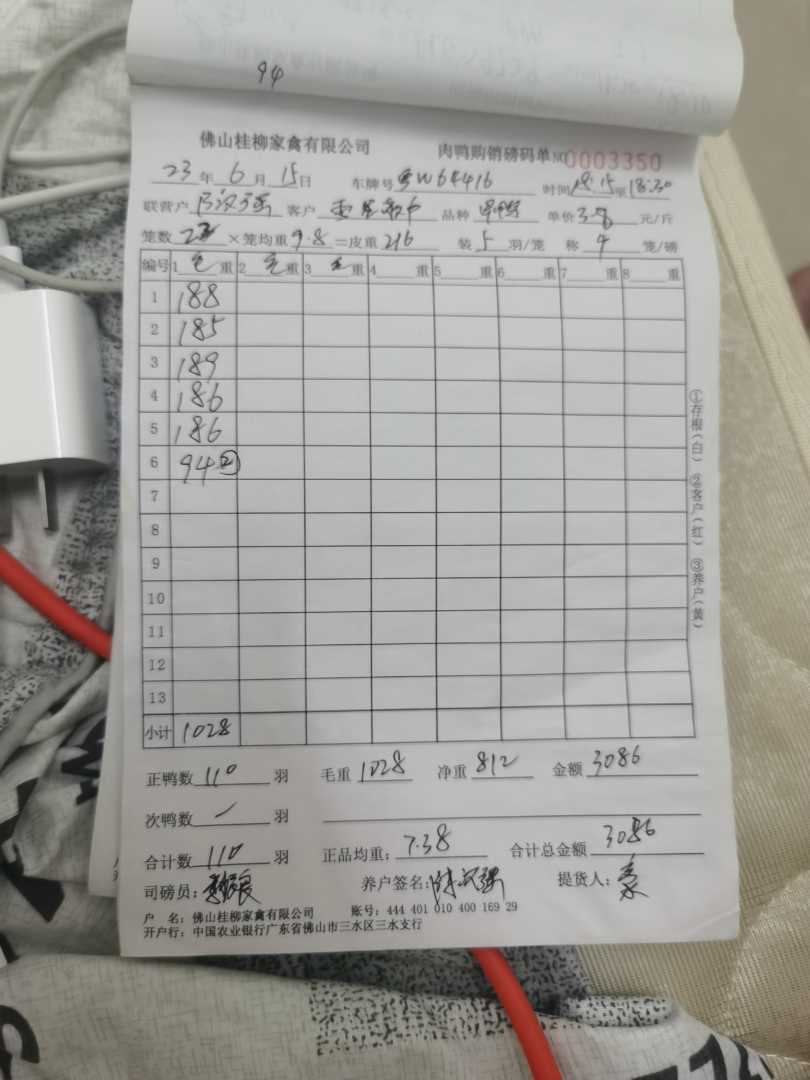 94
佛山桂柳家禽有限公司 肉鸭购销磅码单 NO 0003350
23年6月15日 车牌号 W64416 时间18:15至18:30
联营户 客户 品种 单价3.8元/斤
笼数22×笼均重9.8=皮重216 装5羽/笼 称4笼/磅
编号 1毛重 2毛重 3毛重 4重 5重 6重 7重 8重
1 188
2 185
3 189
4 186
5 186
6 94②
7
8
9
10
11
12
13
小计 1028
正鸭数110羽 毛重1028 净重812 金额3086
次鸭数/羽
合计数110羽 正品均重:7.38 合计总金额3086
司磅员: 养户签名:陈汉强 提货人:
户 名:佛山桂柳家禽有限公司 账号:444 401 010 400 169 29
开户行:中国农业银行广东省佛山市三水区三水支行
①存根(白) ②客户(红) ③养户(黄)